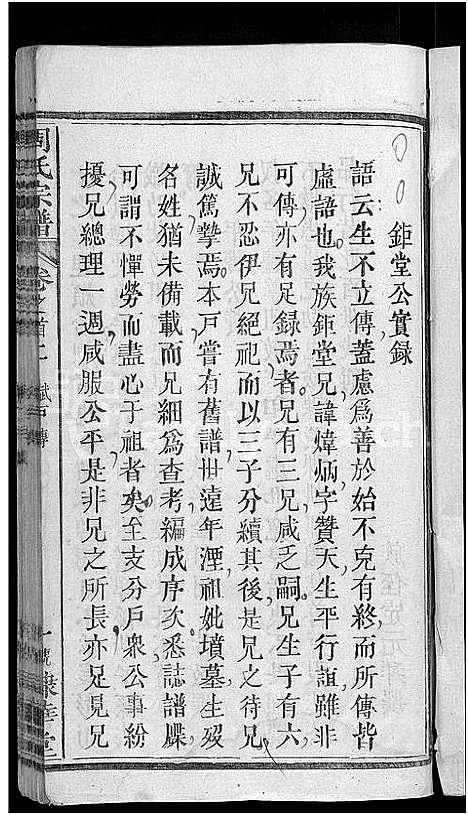 鉅堂公實錄
語云生不立傳蓋慮爲善於始不克有終而所傳皆
虛語也我族鉅堂兄諱煒炳字贊天生平行誼雖非
可傳亦有足錄焉者兄有三兄咸乏嗣兄生子有六
兄不忍伊兄絕祀而以三子分續其後是兄之待兄
誠篤摯焉本戶嘗有舊譜世遠年湮祖妣墳墓生歿
名姓猶未備載而兄細爲查考編成序次悉誌譜牒
可謂不憚勞而盡心于祖者矣至支分戶衆公事紛
擾兄總理一週咸服公平是非兄之所長亦足見兄
周氏宗譜 卷之首二